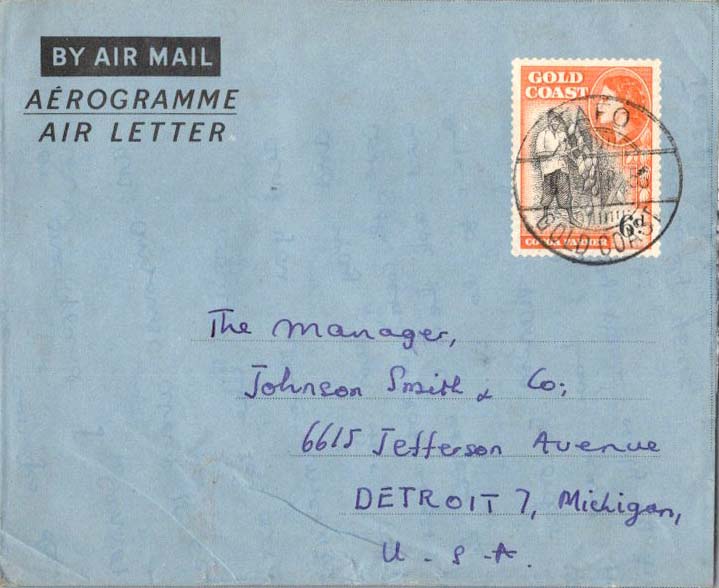 BY AIR MAIL
AÉROGRAMME
AIR LETTER
GOLD
COAST
6d
COCOA FARMER
TAFO
GOLD COAST
The Manager,
Johnson Smith & Co;
6615 Jefferson Avenue
DETROIT 7, Michigan,
U. S. A.